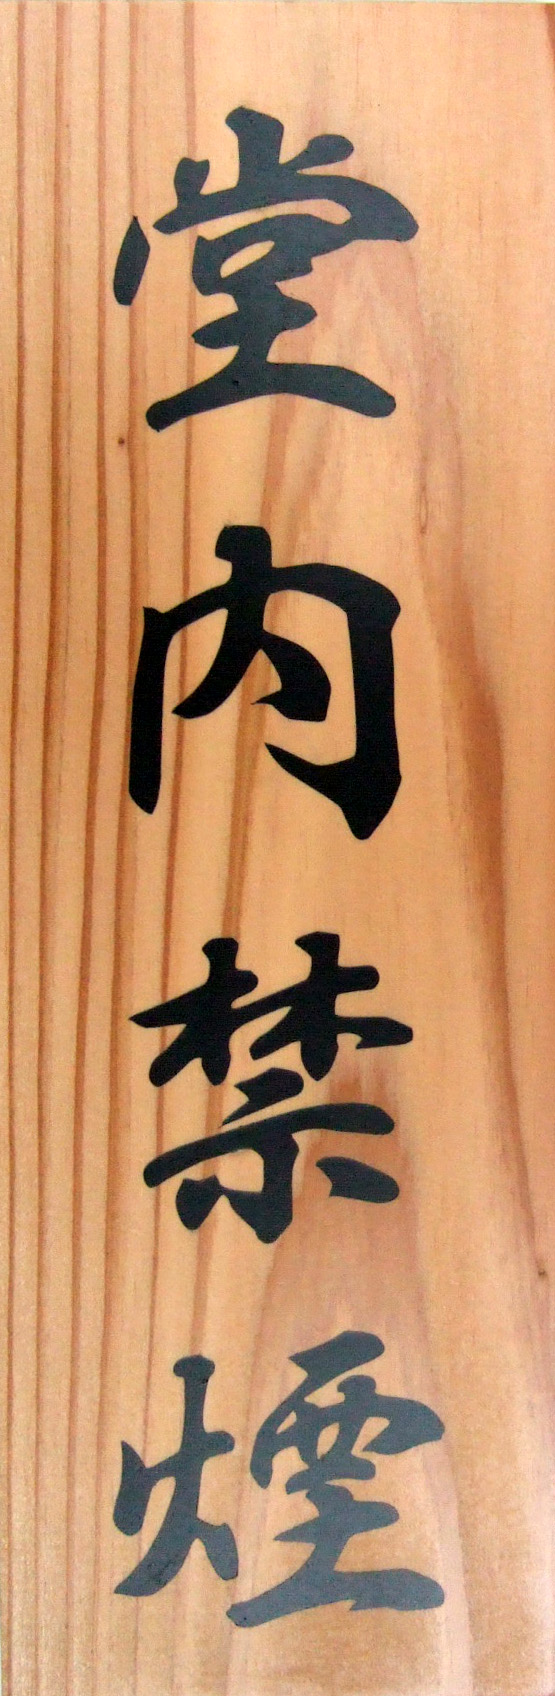 堂内禁煙